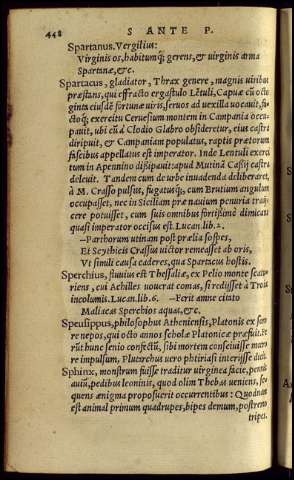 448 S ANTE P.
Spartanus. Vergilius:
Virginis os, habitumq́; gerens, & virginis arma
Spartanæ, &c.
Spartacus, gladiator, Thrax genere, magnis viribus
præstans, qui effracto ergastulo Lētuli, Capua cū octo
ginta eiusdē fortunæ viris, seruos ad vexilla uocauit, fu
ctoq́; exercitu Ceruesium montem in Campania occu-
pauit, ubi cū à Clodio Glabro obsideretur, eius castra
diripuit, & Campaniam populatus, raptis prætorum
fascibus appellatus est imperator. Inde Lentuli exerci
tum in Apennino dißipauit: apud Mutinā Cassij castra
deleuit. Tandem cum de urbe inuadenda deliberaret,
à M. Crasso pulsus, fugatusq́;, cum Brutium angulum
occupasset, nec in Siciliam præ nauium penuria traij-
cere potuisset, cum suis omnibus fortißimè dimicans
quasi imperator occisus est. Lucan. lib. 2.
--Parthorum utinam post prælia sospes,
Et Scythicis Crassus victor remeasset ab oris,
Vt simili causa caderes, qua Spartacus hostis.
Sperchius, fluuius est Thessaliæ, ex Pelio monte scatu-
riens, cui Achilles uouerat comas, si redisset à Troia
incolumis. Lucan. lib. 6. --Ferit amne citato
Maliacas Sperchios aquas, &c.
Speusippus, philosophus Atheniensis, Platonis ex soro
re nepos, qui octo annos scholæ Platonicæ præfuit. Fe
rūt hunc senio confectū, sibi mortem consciuisse mœro
re impulsum, Plutarchus uero phtiriasi interijsse dicit.
Sphinx, monstrum fuisse traditur virginea facie, pennis
auiū, pedibus leoninis, quod olim Thebas ueniens, se-
quens ænigma proposuerit occurrentibus: Quodnam
est animal primum quadrupes, bipes demum, postremo
tripes.